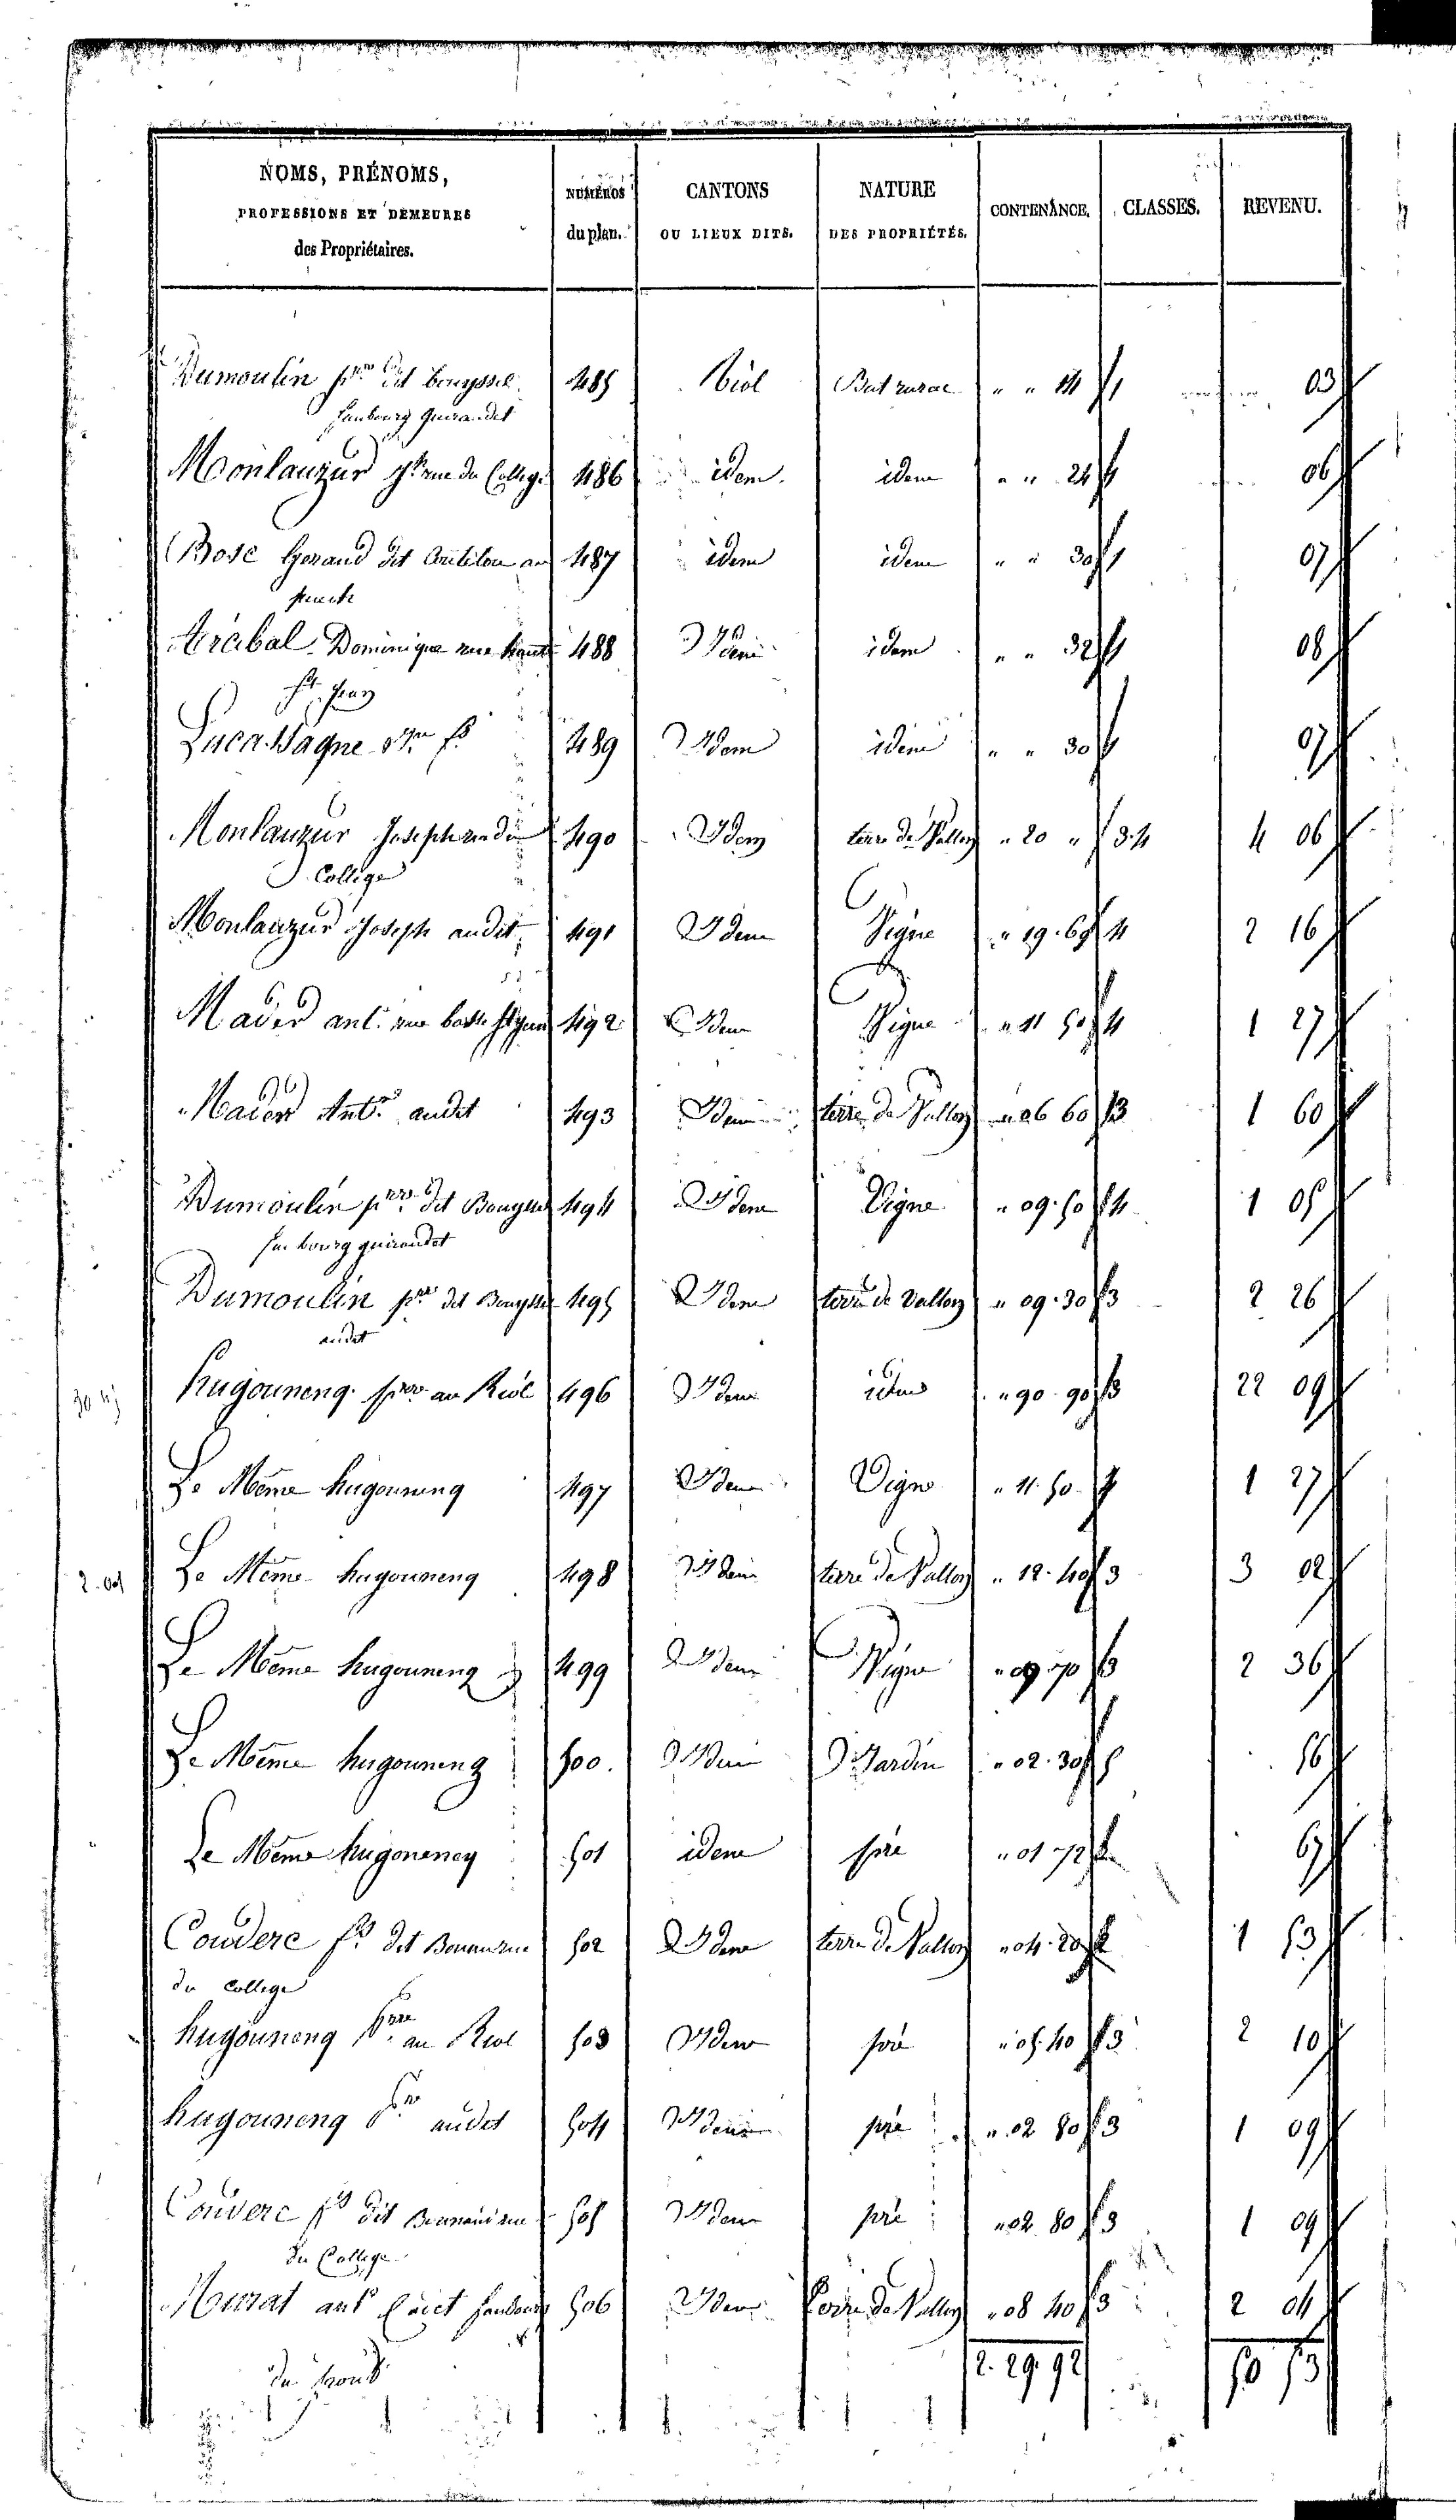 NOMS, PRÉNOMS, PROFESSIONS ET DEMEURES des Propriétaires. | NUMÉROS du plan. | CANTONS OU LIEUX DITS. | NATURE DES PROPRIÉTÉS. | CONTENANCE. | CLASSES. | REVENU.
Dumoulin pre dit bouyssel | 485 | Riol | Bat rural | " " 14 | 1 | 03
faubourg Guirandet
Monlauzur jh rue du College | 486 | idem | idem | " " 24 | 1 | 06
Bosc Gerand dit au | 487 | idem | idem | " " 30 | 1 | 07
Arabal Dominique rue haute | 488 | Idem | idem | " " 32 | 1 | 08
St Jean
Lucassagne fs | 489 | Idem | idem | " " 30 | 1 | 07
Monlauzur Joseph rue du | 490 | Idem | terre de Vallon | " 20 " | 3.4 | 4 06
College
Monlauzur Joseph audit | 491 | Idem | Vigne | " 19.69 | 4 | 2 16
Mader ant. rue basse St Jean | 492 | Idem | Vigne | " 11 50 | 4 | 1 27
Mader Ant. audit | 493 | Idem | terre de Vallon | " 06 60 | 3 | 1 60
Dumoulin pre dit Bouyssel | 494 | Idem | Vigne | " 09.50 | 4 | 1 05
faubourg guirandet
Dumoulin pre dit Bouyssel | 495 | Idem | terre de Vallon | " 09.30 | 3 | 2 26
audit
hugouneng pre au Riol | 496 | Idem | idem | " 90.90 | 3 | 22 09
Le Même hugouneng | 497 | Idem | Vigne | " 11.50 | 4 | 1 27
2.04 | Le Même hugouneng | 498 | Idem | terre de Vallon | " 12.40 | 3 | 3 02
Le Même hugouneng | 499 | Idem | Vigne | " 09 70 | 3 | 2 36
Le Même hugouneng | 500 | Idem | Jardin | " 02.30 | 5 | 56
Le Même hugouneng | 501 | idem | pré | " 01 72 | 67
Couderc fs dit Bonnan rue | 502 | Idem | terre de Vallon | " 04.20 | 2 | 1 53
du College
hugouneng Pre au Riol | 503 | Idem | pré | " 05.40 | 3 | 2 10
hugouneng Pre audit | 504 | Idem | pré | " 02 80 | 3 | 1 09
Couderc fs dit Bonnan rue | 505 | Idem | pré | " 02 80 | 3 | 1 09
du College
Murat ant faubourg | 506 | Idem | terre de Vallon | " 08 40 | 3 | 2 04
du
2.29.92 | 50 53